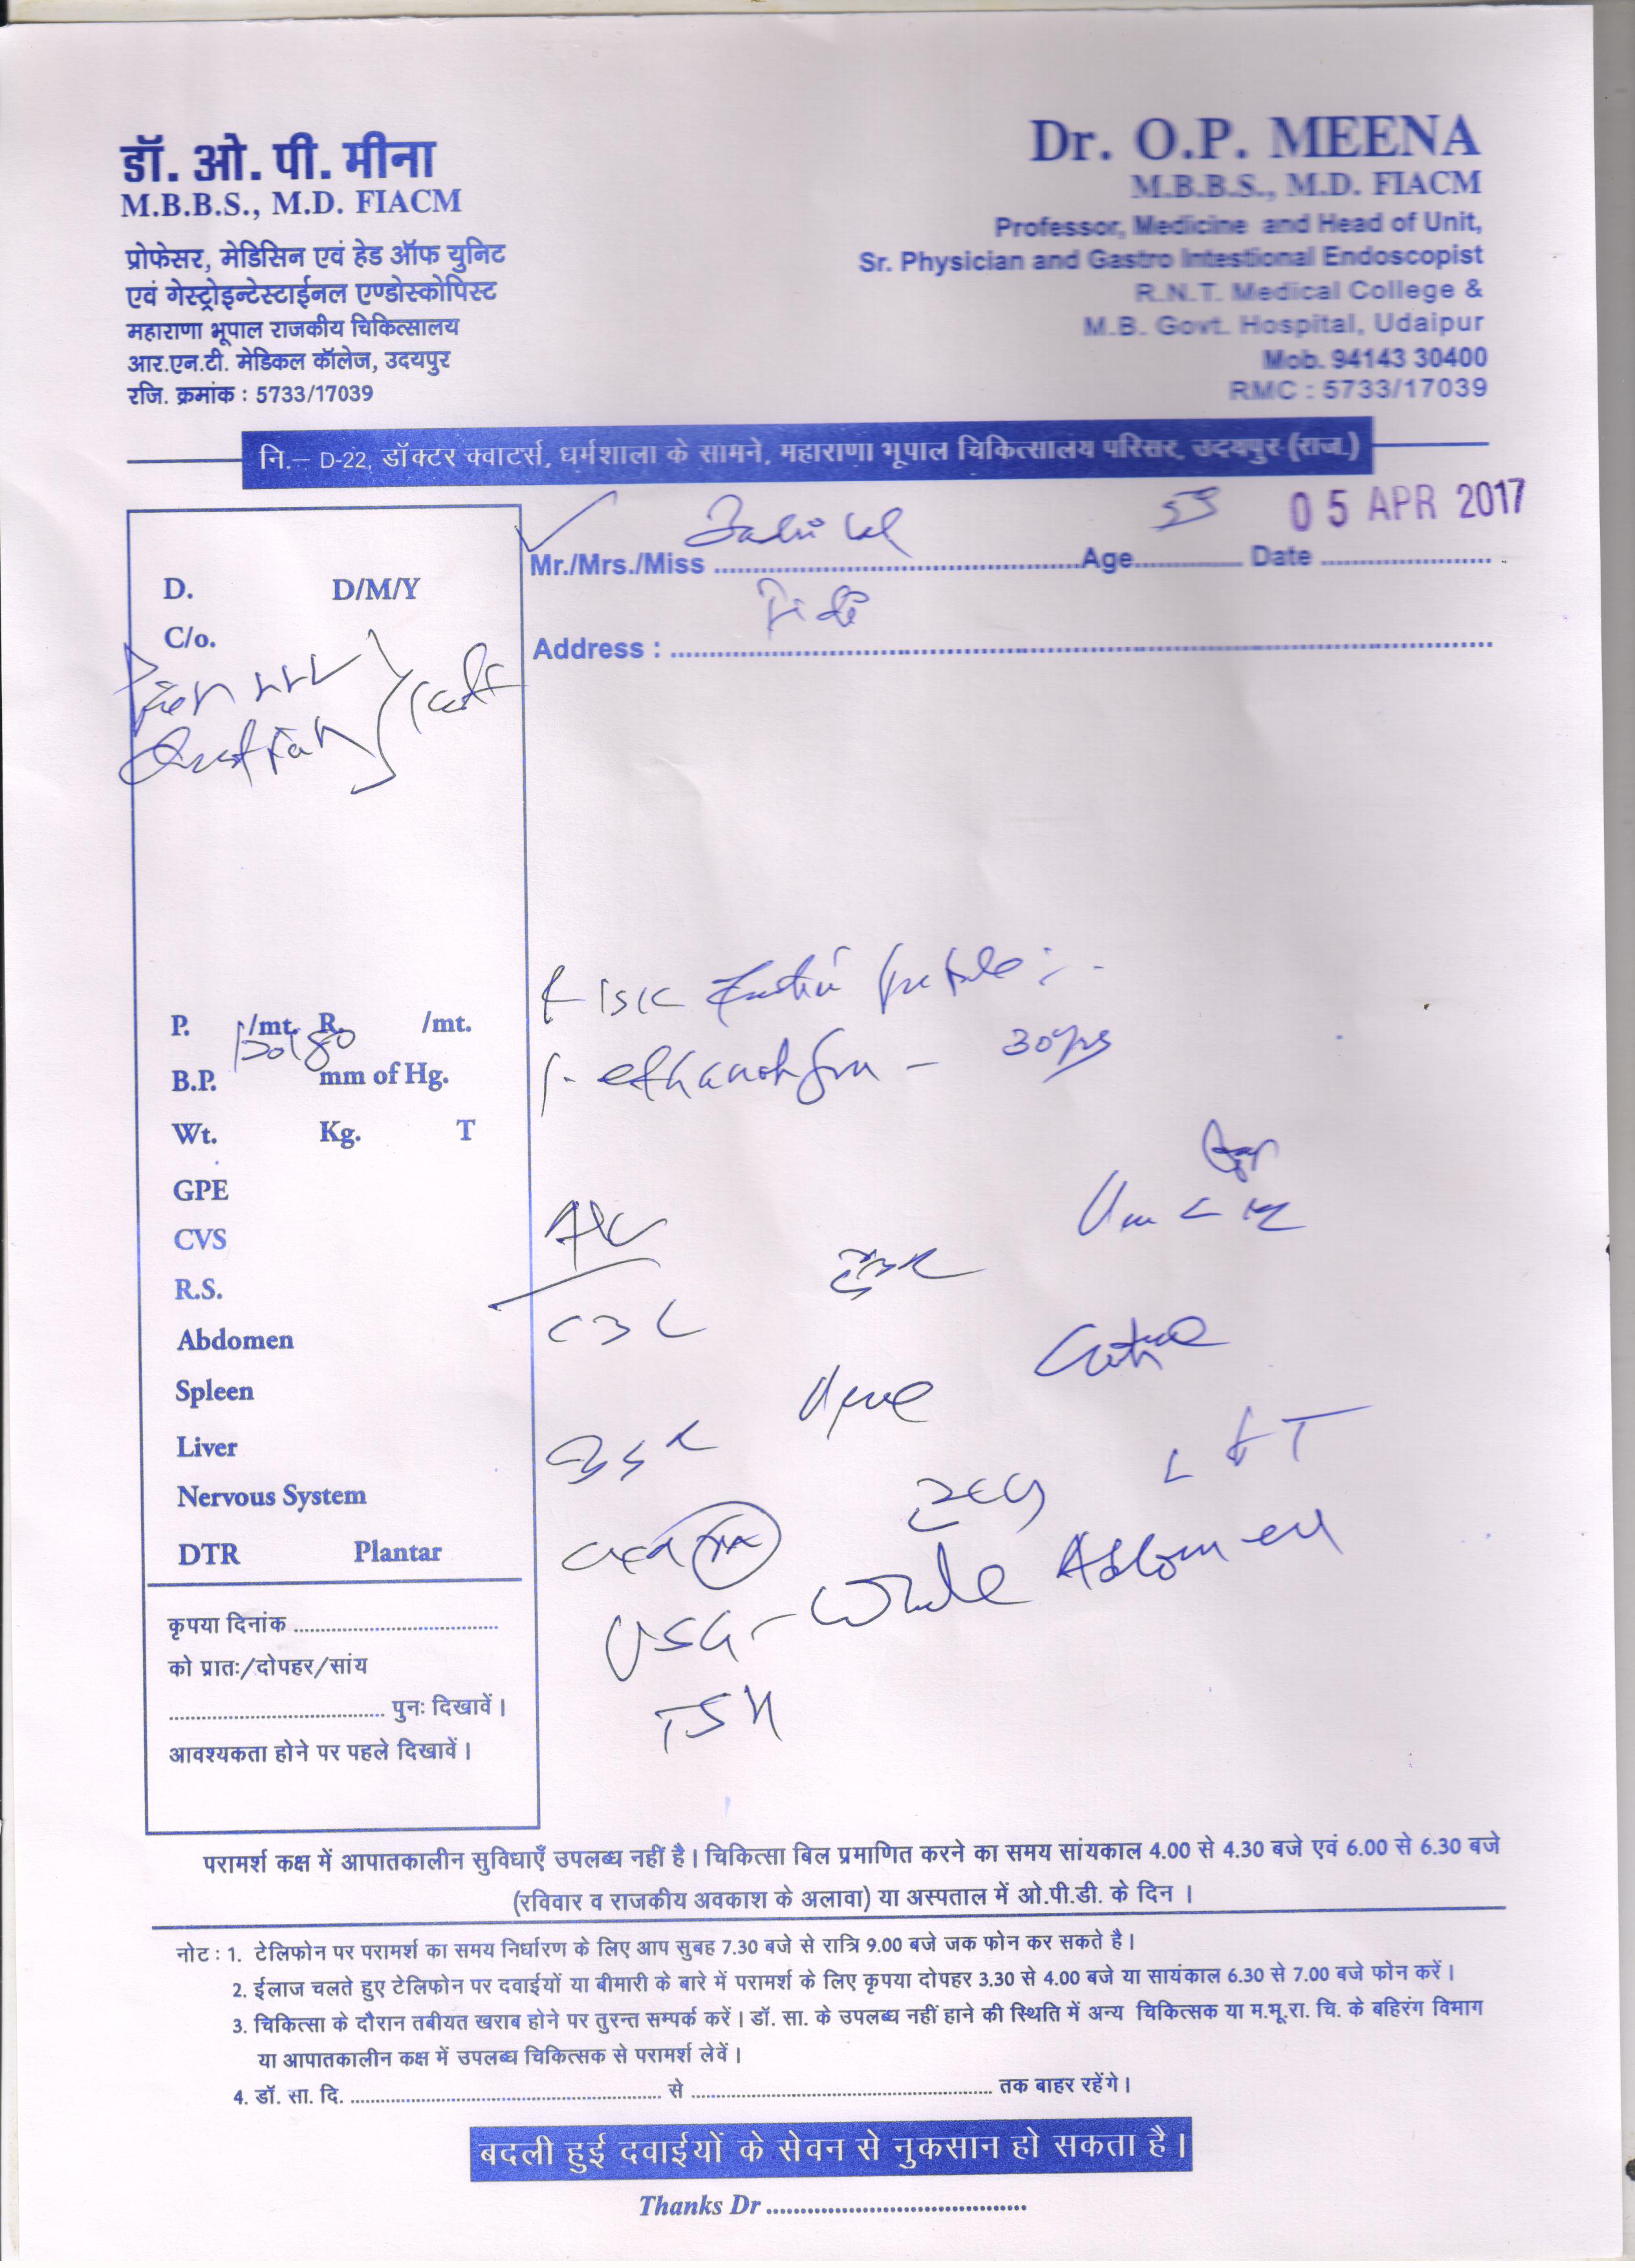 डॉ. ओ. पी. मीना
M.B.B.S., M.D. FIACM
प्रोफेसर, मेडिसिन एवं हेड ऑफ युनिट
एवं गेस्ट्रोइन्टेस्टाईनल एण्डोस्कोपिस्ट
महाराणा भूपाल राजकीय चिकित्सालय
आर.एन.टी. मेडिकल कॉलेज, उदयपुर
रजि. क्रमांक : 5733/17039
Dr. O.P. MEENA
M.B.B.S., M.D. FIACM
Professor, Medicine and Head of Unit,
Sr. Physician and Gastro Intestional Endoscopist
R.N.T. Medical College &
M.B. Govt. Hospital, Udaipur
Mob. 94143 30400
RMC : 5733/17039
नि.– D-22, डॉक्टर क्वाटर्स, धर्मशाला के सामने, महाराणा भूपाल चिकित्सालय परिसर, उदयपुर (राज.)
Mr./Mrs./Miss Age 55 Date 05 APR 2017
Address :
D. D/M/Y
C/o.
P. /mt. R. /mt.
B.P. mm of Hg.
Wt. Kg. T
GPE
CVS
R.S.
Abdomen
Spleen
Liver
Nervous System
DTR Plantar
कृपया दिनांक
को प्रातः/दोपहर/सांय
पुनः दिखावें।
आवश्यकता होने पर पहले दिखावें।
30 yrs
CBC
LFT
ECG
USG - Whole Abdomen
TSH
परामर्श कक्ष में आपातकालीन सुविधाएँ उपलब्ध नहीं है। चिकित्सा बिल प्रमाणित करने का समय सांयकाल 4.00 से 4.30 बजे एवं 6.00 से 6.30 बजे
(रविवार व राजकीय अवकाश के अलावा) या अस्पताल में ओ.पी.डी. के दिन ।
नोट : 1. टेलिफोन पर परामर्श का समय निर्धारण के लिए आप सुबह 7.30 बजे से रात्रि 9.00 बजे जक फोन कर सकते है।
2. ईलाज चलते हुए टेलिफोन पर दवाईयों या बीमारी के बारे में परामर्श के लिए कृपया दोपहर 3.30 से 4.00 बजे या सायंकाल 6.30 से 7.00 बजे फोन करें।
3. चिकित्सा के दौरान तबीयत खराब होने पर तुरन्त सम्पर्क करें। डॉ. सा. के उपलब्ध नहीं हाने की स्थिति में अन्य चिकित्सक या म.मू.रा. चि. के बहिरंग विमाग
या आपातकालीन कक्ष में उपलब्ध चिकित्सक से परामर्श लेवें।
4. डॉ. सा. दि. से तक बाहर रहेंगे।
बदली हुई दवाईयों के सेवन से नुकसान हो सकता है।
Thanks Dr